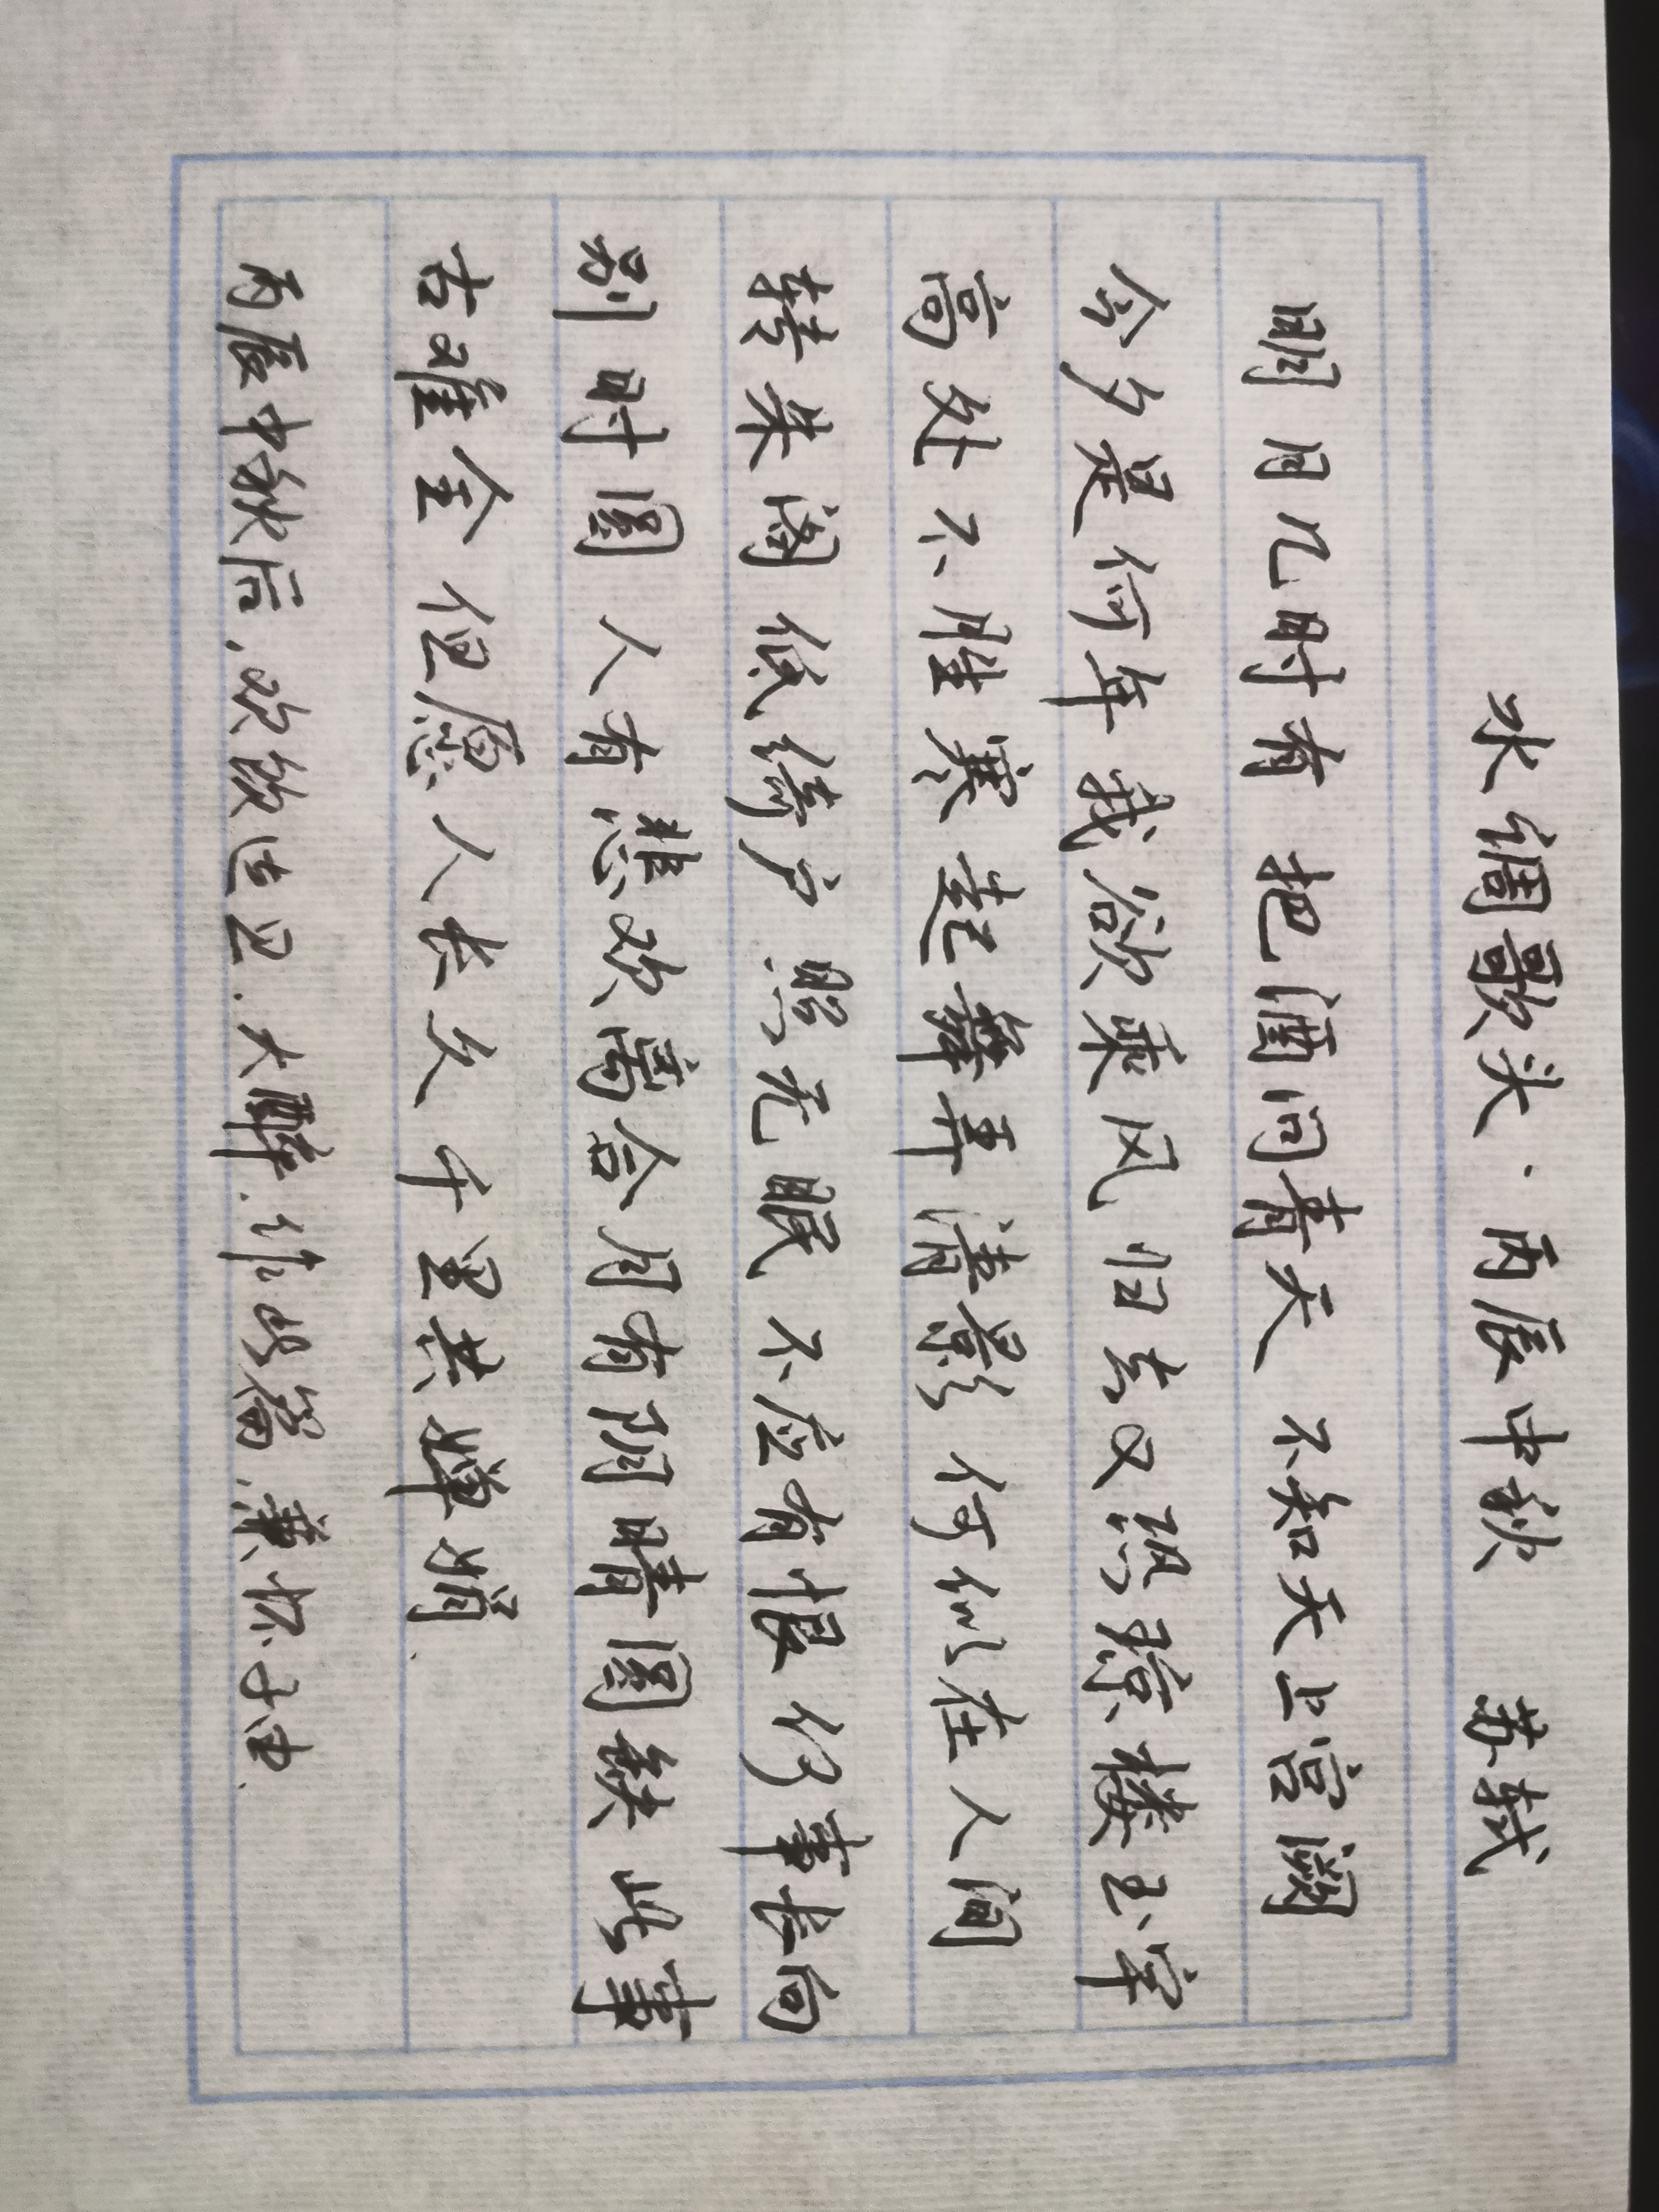 水调歌头·丙辰中秋 苏轼
明月几时有 把酒问青天 不知天上宫阙
今夕是何年 我欲乘风归去又恐琼楼玉宇
高处不胜寒 起舞弄清影 何似在人间
转朱阁 低绮户 照无眠 不应有恨 何事长向
别时圆 人有悲欢离合月有阴晴圆缺 此事
古难全 但愿人长久 千里共婵娟.
丙辰中秋后,欢饮达旦.大醉.作此篇.兼怀子由.